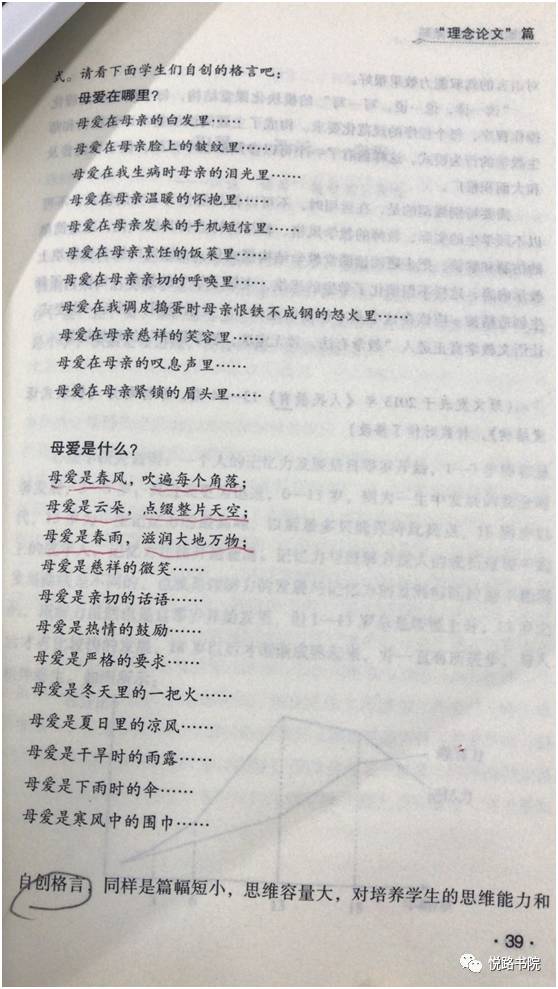 “理念论文”篇
式。请看下面学生们自创的格言吧:
母爱在哪里?
母爱在母亲的白发里……
母爱在母亲脸上的皱纹里……
母爱在我生病时母亲的泪光里……
母爱在母亲温暖的怀抱里……
母爱在母亲发来的手机短信里……
母爱在母亲烹饪的饭菜里……
母爱在母亲亲切的呼唤里……
母爱在我调皮捣蛋时母亲恨铁不成钢的怒火里……
母爱在母亲慈祥的笑容里……
母爱在母亲的叹息声里……
母爱在母亲紧锁的眉头里……
母爱是什么?
母爱是春风,吹遍每个角落;
母爱是云朵,点缀整片天空;
母爱是春雨,滋润大地万物;
母爱是慈祥的微笑……
母爱是亲切的话语……
母爱是热情的鼓励……
母爱是严格的要求……
母爱是冬天里的一把火……
母爱是夏日里的凉风……
母爱是干旱时的雨露……
母爱是下雨时的伞……
母爱是寒风中的围巾……
自创格言,同样是篇幅短小,思维容量大,对培养学生的思维能力和
·39·
悦路书院